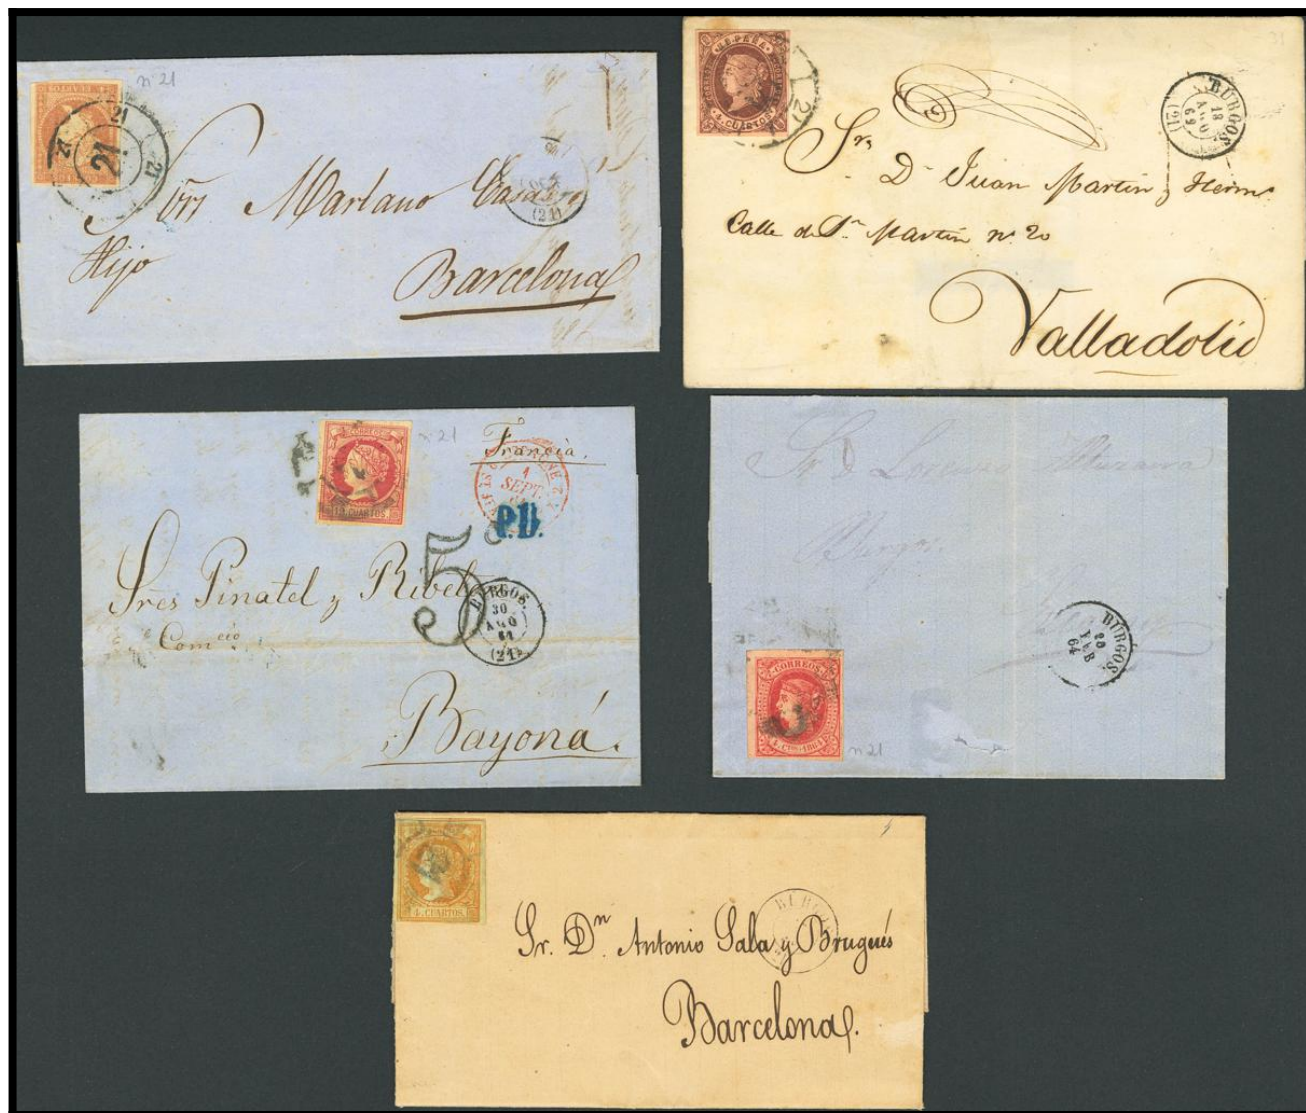 n 21
21
21
21
21
Mariano Casas é
Hijo
Barcelona
(21)
ESPAÑA
4 CUARTOS
21
BURGOS
18
AGO
6
(21)
31
Sr,
Dn Juan Martin y Hermo
Calle de Sn Martin no 20
Valladolid
CORREOS
CUARTOS
n 21
Francia.
1
SEPT.
P.D.
5
Sres Pinatel y Ribel
Comcio
BURGOS.
30
AGO
61
(21)
Bayona.
Sr D
Burgos
BURGOS.
FEB
64
CORREOS
4 CTOS 1864
n 21
4 CUARTOS.
BURGO
Sr. Dn. Antonio Sala y Brugués
Barcelona.